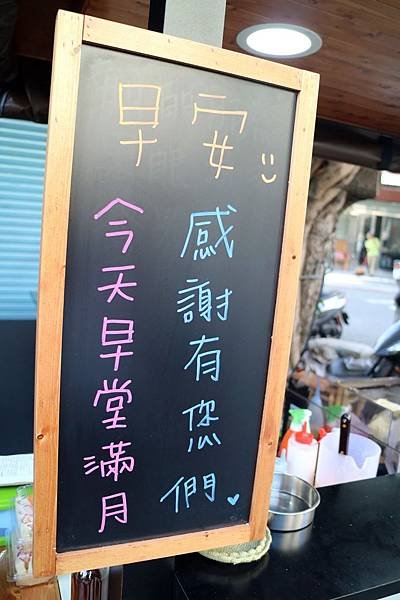 早安
感謝有您們
今天早堂滿月